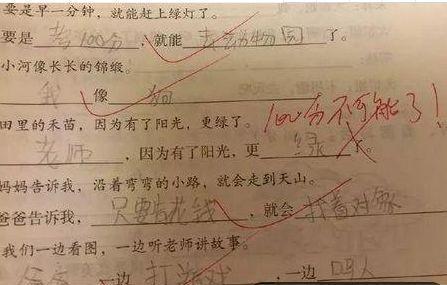 要是早一分钟，就能赶上绿灯了。
要是 考100分 ，就能 去动物园 了。
小河像长长的锦缎。
我 像 狗
田里的禾苗，因为有了阳光，更绿了。
100分不可能了！
老师 ，因为有了阳光，更 绿 了。
妈妈告诉我，沿着弯弯的小路，就会走到天山。
爸爸告诉我， 只要有花钱 ，就会 找着对象
我们一边看图，一边听老师讲故事。
一边 打游戏 ，一边 骂人